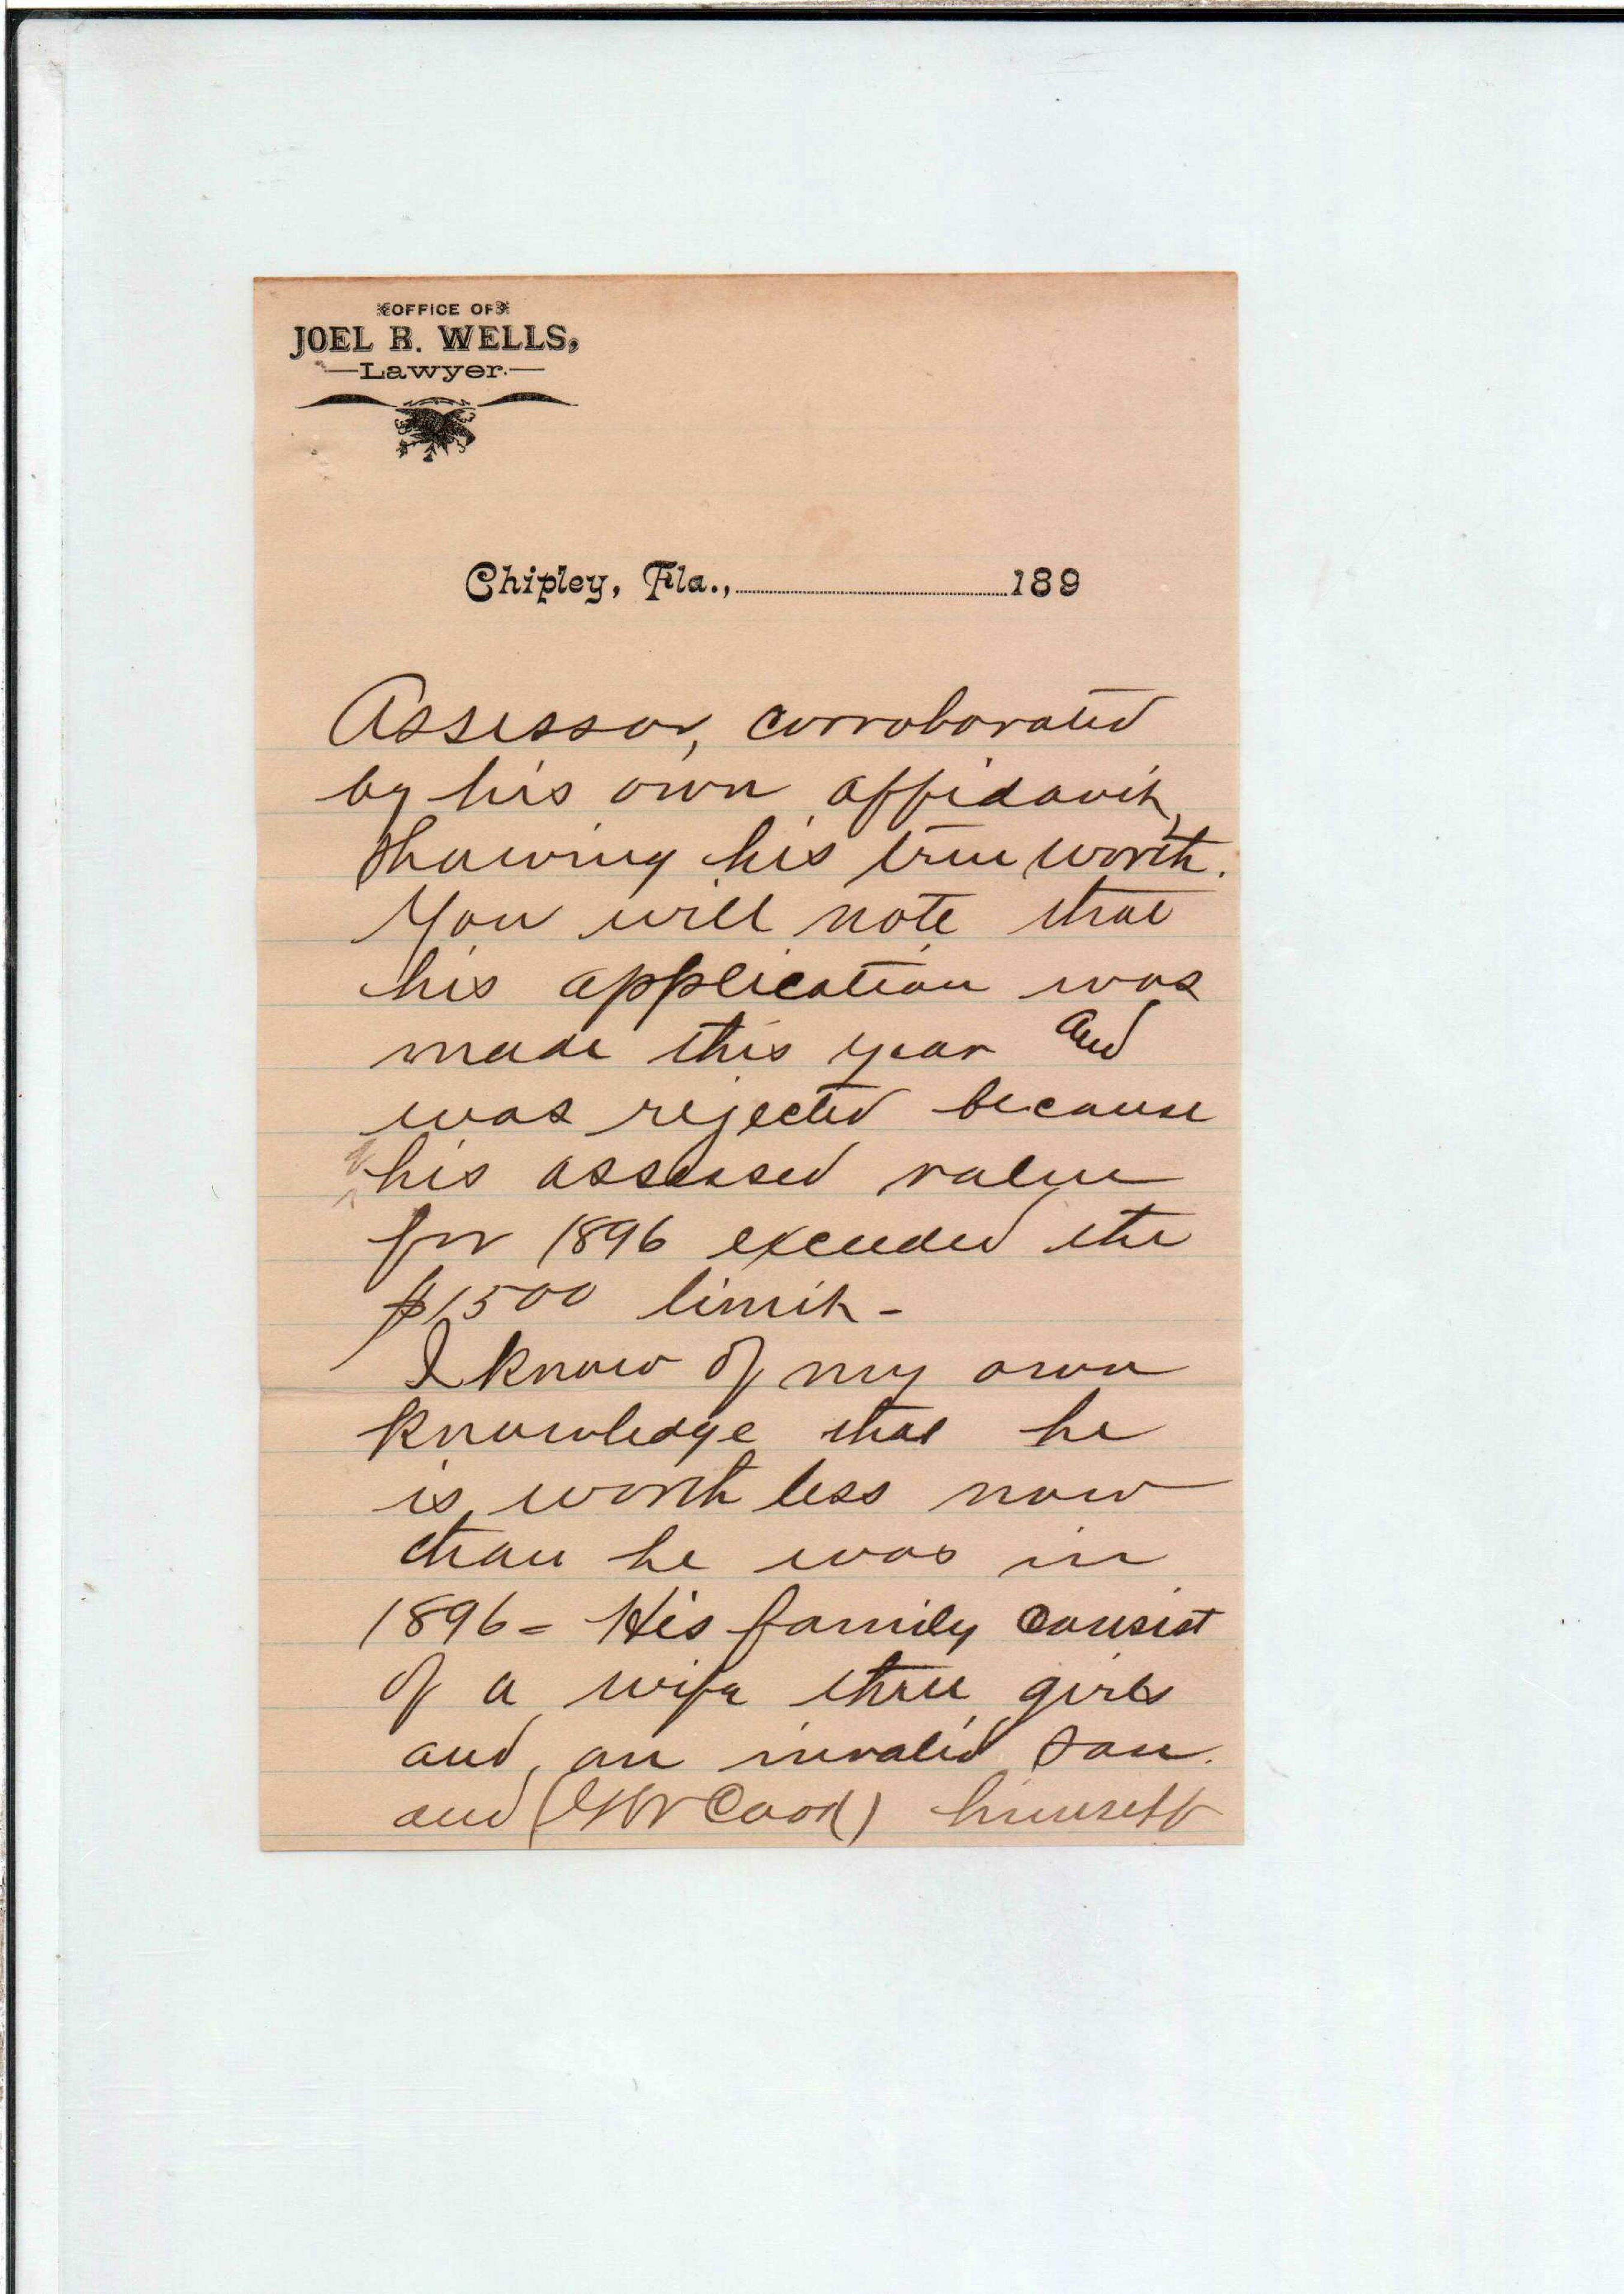 OFFICE OF
JOEL R. WELLS,
—Lawyer.—
Chipley, Fla.,..............................189
Assessor, corroborated
by his own affidavit,
showing his true worth.
You will note that
his application was
made this year and
was rejected because
his assessed value
for 1896 exceeded the
$1500 limit -
I know of my own
knowledge that he
is worth less now
than he was in
1896 - His family consist
of a wife three girls
and an invalid son.
and ( Cook) himself